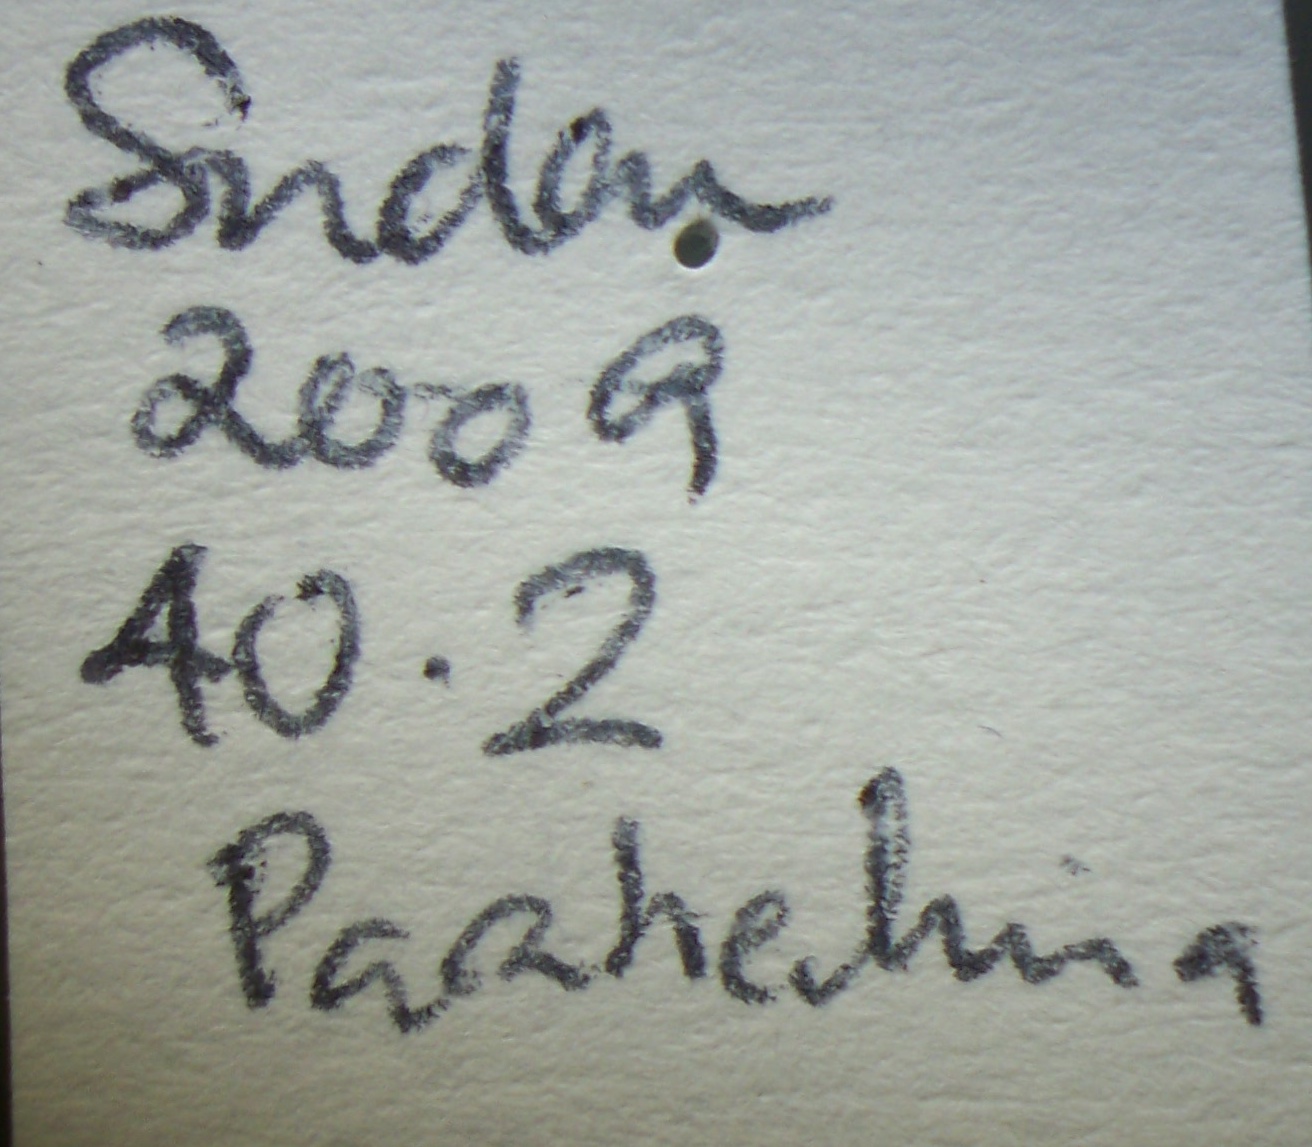 Sudan
2009
40.2